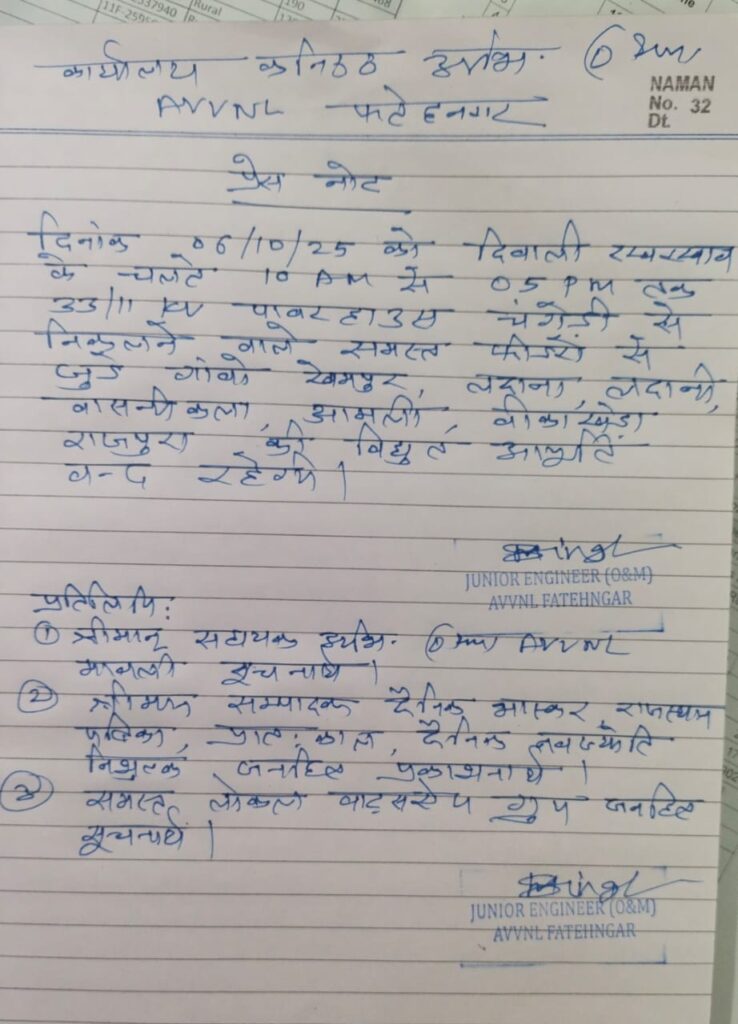 कार्यालय कनिष्ठ अभि. O&M
AVVNL फतेहनगर
NAMAN
No. 32
Dt.
प्रेस नोट
दिनांक 06/10/25 को दिवाली रखरखाव
के चलते 10 AM से 05 PM तक
33/11 KV पावर हाउस चंगेडी से
निकलने वाले समस्त फीडरों से
जुडे गांवो खेमपुर, लदाना, लदानी,
वासनीकला, आमली, वीकाखेडा
राजपुरा की विद्युत आपूर्ति
बन्द रहेगी।
JUNIOR ENGINEER (O&M)
AVVNL FATEHNGAR
प्रतिलिपि:
① श्रीमान् सहायक अभि. O&M AVVNL
मावली सूचनार्थ।
② श्रीमान सम्पादक दैनिक भास्कर, राजस्थान
पत्रिका, प्रातःकाल, दैनिक नवज्योति
निशुल्क जनहित प्रकाशनार्थ।
③ समस्त लोकल वाट्सएप ग्रुप जनहित
सूचनार्थ।
JUNIOR ENGINEER (O&M)
AVVNL FATEHNGAR